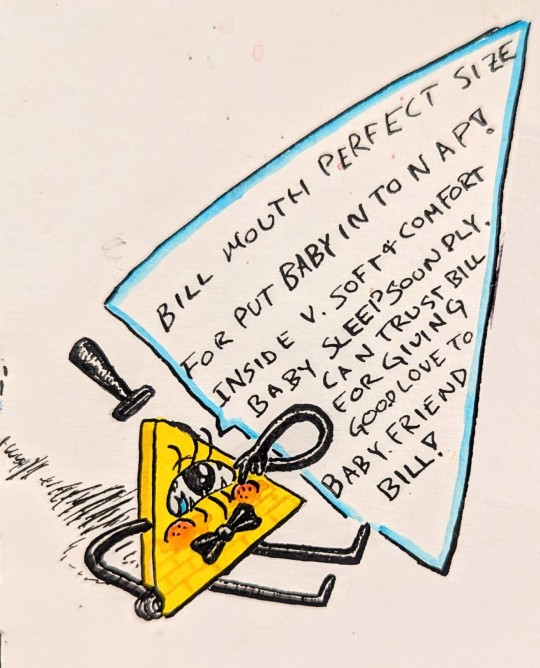 BILL MOUTH PERFECT SIZE
FOR PUT BABY IN TO NAP!
INSIDE V. SOFT & COMFORT
BABY SLEEP SOUNDLY.
CAN TRUST BILL
FOR GIVING
GOOD LOVE TO
BABY. FRIEND
BILL!